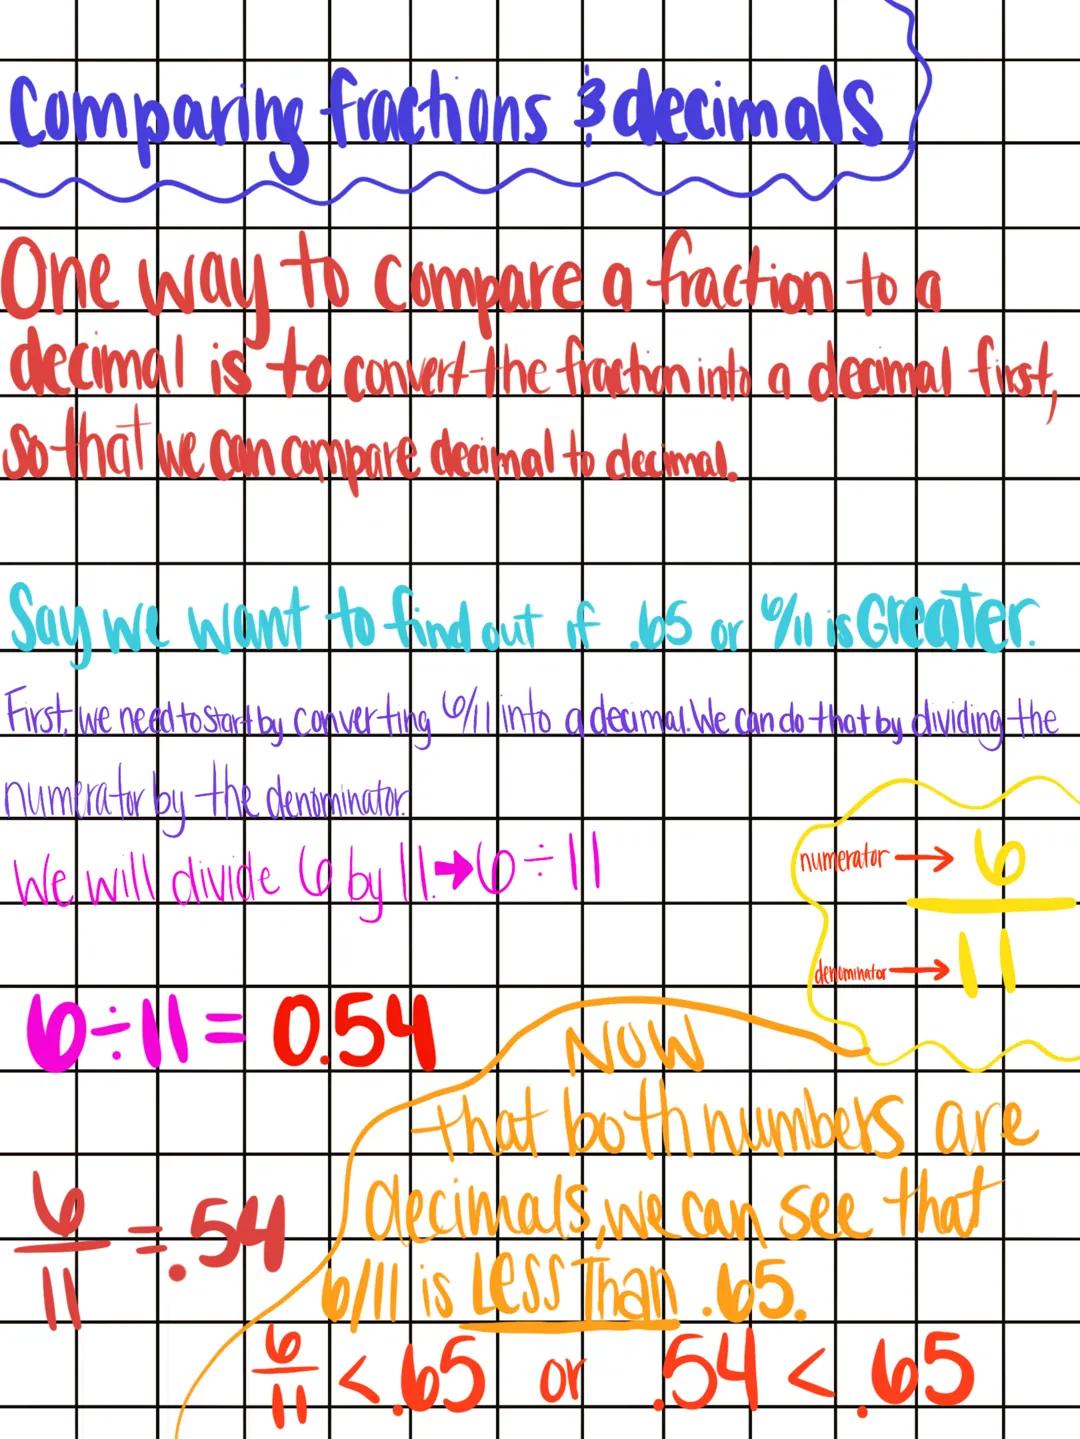 Comparing fractions & decimals
One way to compare a fraction to a
decimal is to convert the fraction into a decimal first,
so that we can compare decimal to decimal.
Say we want to find out if .65 or 6/11 is Greater.
First, we need to start by converting 6/11 into a decimal. We can do that by dividing the
numerator by the denominator.
We will divide 6 by 11. → 6 ÷ 11
numerator → 6
denominator → 11
6 ÷ 11 = 0.54
NOW
that both numbers are
decimals, we can see that
6/11 is Less Than .65.
6/11 = .54
6/11 < .65 or .54 < .65